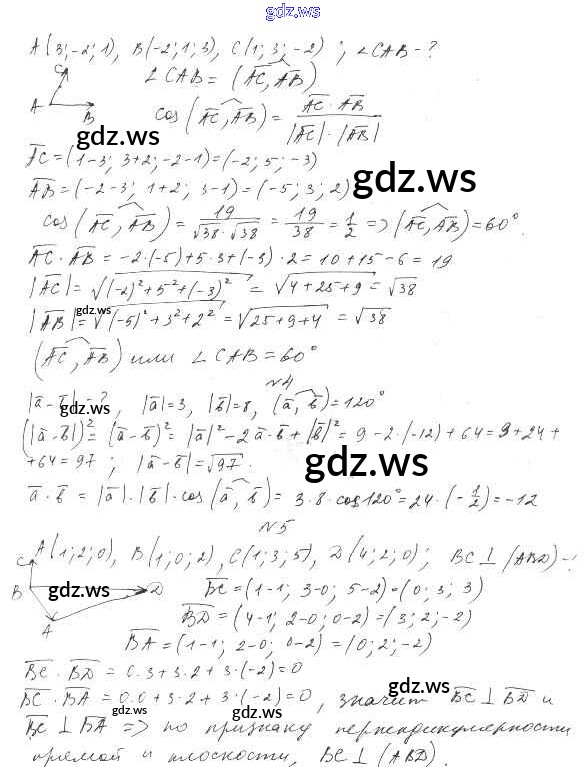 gdz.ws
A(3;-2;1), B(-2;1;3), C(1;3;-2); ∠CAB-?
C
∠CAB = (AC, AB)
A
B
cos(AC, AB) = AC·AB / |AC|·|AB|
gdz.ws
AC = (1-3; 3+2; -2-1) = (-2; 5; -3)
AB = (-2-3; 1+2; 3-1) = (-5; 3; 2)
gdz.ws
cos(AC, AB) = 19/(√38·√38) = 19/38 = 1/2 => (AC, AB) = 60°.
AC·AB = -2·(-5)+5·3+(-3)·2 = 10+15-6 = 19
|AC| = √((-2)²+5²+(-3)²) = √(4+25+9) = √38
gdz.ws
|AB| = √((-5)²+3²+2²) = √(25+9+4) = √38
(AC, AB) или ∠CAB = 60°
N4
|a-b|-?, |a|=3, |b|=8, (a, b)=120°
gdz.ws
(|a-b|)² = (a-b)² = |a|²-2a·b+|b|² = 9-2·(-12)+64 = 9+24+
+64=97; |a-b|=√97.
gdz.ws
a·b = |a|·|b|·cos(a, b) = 3·8·cos120° = 24·(-1/2) = -12
N5
A(1;2;0), B(1;0;2), C(1;3;5), D(4;2;0); BC⊥(ABD)-?
C
B
D
A
gdz.ws
BC = (1-1; 3-0; 5-2) = (0; 3; 3)
BD = (4-1; 2-0; 0-2) = (3; 2; -2)
gdz.ws
BA = (1-1; 2-0; 0-2) = (0; 2; -2)
BC·BD = 0·3+3·2+3·(-2)=0
BC·BA = 0·0+3·2+3·(-2)=0, значит BC⊥BD и
gdz.ws
BC⊥BA => по признаку перпендикулярности
gdz.ws
прямой и плоскости, BC⊥(ABD).